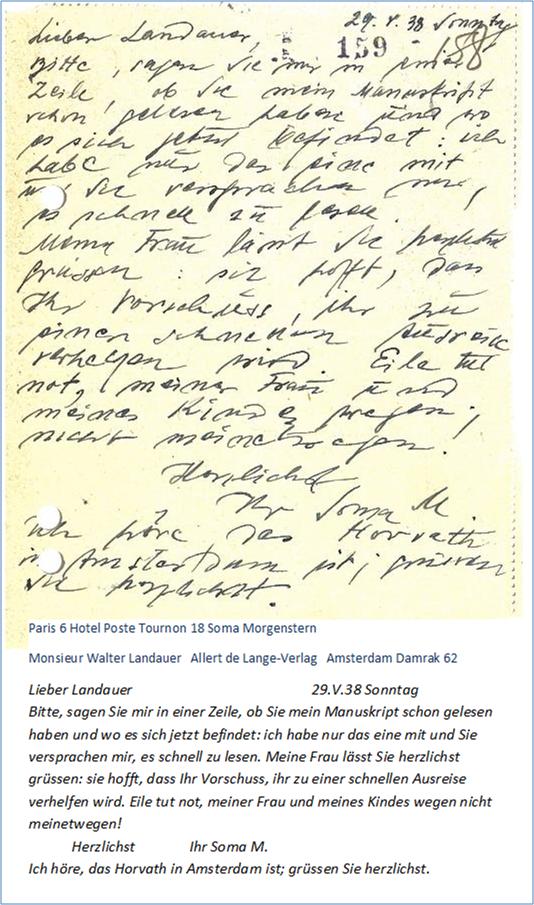 29. V. 38 Sonntag
Lieber Landauer, 159
Bitte, sagen Sie mir in einer
Zeile, ob Sie mein Manuskript
schon gelesen haben und wo
es sich jetzt befindet: ich
habe nur das eine mit
und Sie versprachen mir,
es schnell zu lesen.
Meine Frau lässt Sie herzlichst
grüssen: sie hofft, dass
Ihr Vorschuss, ihr zu
einer schnellen Ausreise
verhelfen wird. Eile tut
not, meiner Frau und
meines Kindes wegen,
nicht meinetwegen!
Herzlichst
Ihr Soma M.
Ich höre das Horvath
in Amsterdam ist; grüssen
Sie herzlichst.
Paris 6 Hotel Poste Tournon 18 Soma Morgenstern
Monsieur Walter Landauer Allert de Lange-Verlag Amsterdam Damrak 62
Lieber Landauer 29.V.38 Sonntag
Bitte, sagen Sie mir in einer Zeile, ob Sie mein Manuskript schon gelesen
haben und wo es sich jetzt befindet: ich habe nur das eine mit und Sie
versprachen mir, es schnell zu lesen. Meine Frau lässt Sie herzlichst
grüssen: sie hofft, dass Ihr Vorschuss, ihr zu einer schnellen Ausreise
verhelfen wird. Eile tut not, meiner Frau und meines Kindes wegen nicht
meinetwegen!
Herzlichst Ihr Soma M.
Ich höre, das Horvath in Amsterdam ist; grüssen Sie herzlichst.